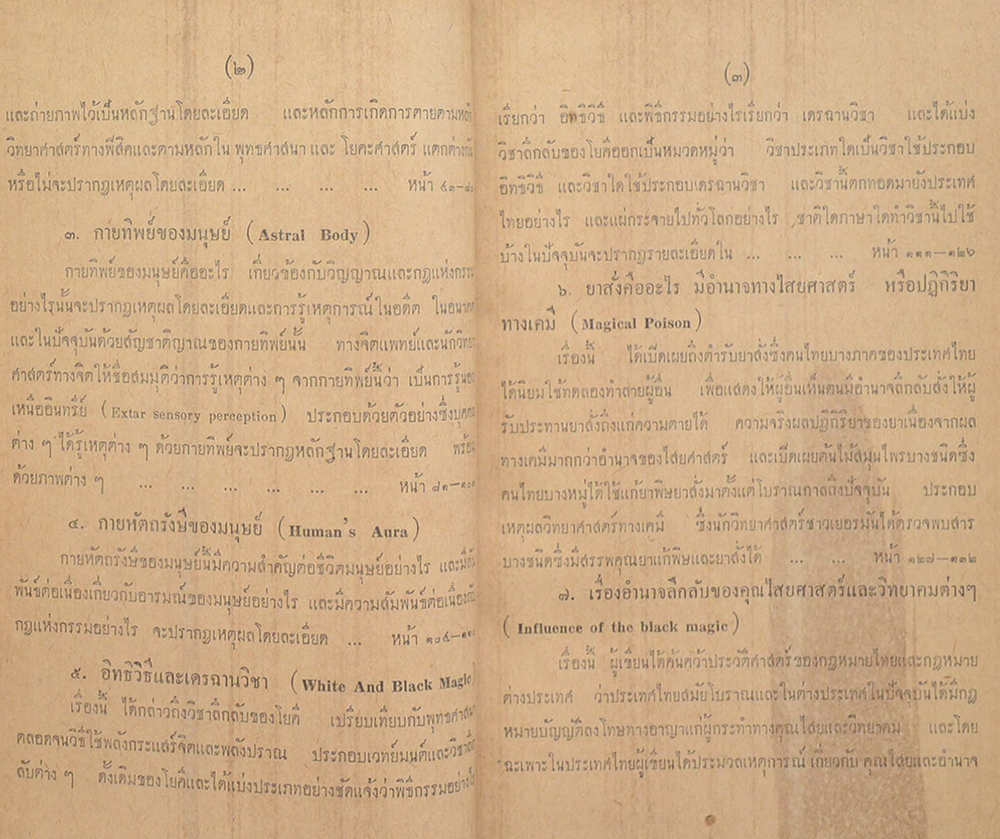 (๒)
และถ่ายภาพไว้เป็นหลักฐานโดยละเอียด และหลักการเกิดการตายตามหลัก
วิทยาศาสตร์ทางฟิสิคและตามหลักใน พุทธศาสนา และ โยคะศาสตร์ แตกต่างกัน
หรือไม่จะปรากฏเหตุผลโดยละเอียด ... ... ... ... หน้า
๓. กายทิพย์ของมนุษย์ (Astral Body)
กายทิพย์ของมนุษย์คืออะไร เกี่ยวข้องกับวิญญาณและกฎแห่งกรรม
อย่างไรนั้นจะปรากฏเหตุผลโดยละเอียดและการรู้เหตุการณ์ในอดีต ในอนาคต
และในปัจจุบันด้วยสัญชาติญาณของกายทิพย์นั้น ทางจิตแพทย์และนักวิทยา
ศาสตร์ทางจิตให้ชื่อสมมติว่าการรู้เหตุต่าง ๆ จากกายทิพย์นี้ว่า เป็นการรู้นอก
เหนืออินทรีย์ (Extar sensory perception) ประกอบด้วยตัวอย่างซึ่งบุคคล
ต่าง ๆ ได้รู้เหตุต่าง ๆ ด้วยกายทิพย์จะปรากฏหลักฐานโดยละเอียด พร้อม
ด้วยภาพต่าง ๆ ... ... ... ... ... ... หน้า
๔. กายหัตถรังษีของมนุษย์ (Human's Aura)
กายหัตถรังษีของมนุษย์นี้มีความสำคัญต่อชีวิตมนุษย์อย่างไร และมีสัม
พันธ์ต่อเนื่องเกี่ยวกับอารมณ์ของมนุษย์อย่างไร และมีความสัมพันธ์ต่อเนื่องกับ
กฎแห่งกรรมอย่างไร จะปรากฏเหตุผลโดยละเอียด ... หน้า
๕. อิทธิวิธีและเดรฉานวิชา (White And Black Magic
เรื่องนี้ ได้กล่าวถึงวิชาลึกลับของโยคี เปรียบเทียบกับพุทธศาสนา
ตลอดจนวิธีใช้พลังกระแสร์จิตและพลังปราณ ประกอบเวทย์มนต์และวิชาลึก
ลับต่าง ๆ ดั้งเดิมของโยคีและได้แบ่งประเภทอย่างชัดแจ้งว่าพิธีกรรมอย่างไร
(๓)
เรียกว่า อิทธิวิธี และพิธีกรรมอย่างไรเรียกว่า เดรฉานวิชา และได้แบ่ง
วิชาลึกลับของโยคีออกเป็นหมวดหมู่ว่า วิชาประเภทใดเป็นวิชาใช้ประกอบ
อิทธิวิธี และวิชาใดใช้ประกอบเดรฉานวิชา และวิชานี้ตกทอดมายังประเทศ
ไทยอย่างไร และแผ่กระจายไปทั่วโลกอย่างไร ชาติใดภาษาใดทำวิชานี้ไปใช้
บ้างในปัจจุบันจะปรากฏรายละเอียดใน ... ... ... หน้า ๑๑๑–๑๒๖
๖. ยาสั่งคืออะไร มีอำนาจทางไสยศาสตร์ หรือปฏิกิริยา
ทางเคมี (Magical Poison)
เรื่องนี้ ได้เปิดเผยถึงตำรับยาสั่งซึ่งคนไทยบางภาคของประเทศไทย
ได้นิยมใช้ทดลองทำลายผู้อื่น เพื่อแสดงให้ผู้อื่นเห็นตนมีอำนาจลึกลับสั่งให้ผู้
รับประทานยาสั่งถึงแก่ความตายได้ ความจริงผลปฏิกิริยาของยาเนื่องจากผล
ทางเคมีมากกว่าอำนาจของไสยศาสตร์ และเปิดเผยต้นไม้สมุนไพรบางชนิดซึ่ง
คนไทยบางหมู่ได้ใช้แก้ยาพิษยาสั่งมาตั้งแต่โบราณกาลถึงปัจจุบัน ประกอบ
เหตุผลวิทยาศาสตร์ทางเคมี ซึ่งนักวิทยาศาสตร์ชาวเยอรมันได้ตรวจพบสาร
บางชนิดซึ่งมีสรรพคุณยาแก้พิษและยาสั่งได้ ... ... หน้า ๑๒๗–๑๓๒
๗. เรื่องอำนาจลึกลับของคุณไสยศาสตร์และวิทยาคมต่างๆ
(Influence of the black magic)
เรื่องนี้ ผู้เขียนได้ค้นคว้าประวัติศาสตร์ของกฎหมายไทยและกฎหมาย
ต่างประเทศ ว่าประเทศไทยสมัยโบราณและในต่างประเทศในปัจจุบันได้มีกฎ
หมายบัญญัติลงโทษทางอาญาแก่ผู้กระทำทางคุณไสยและวิทยาคม และโดย
ฉะเพาะในประเทศไทยผู้เขียนได้ประมวลเหตุการณ์ เกี่ยวกับ คุณไสยและอำนาจ